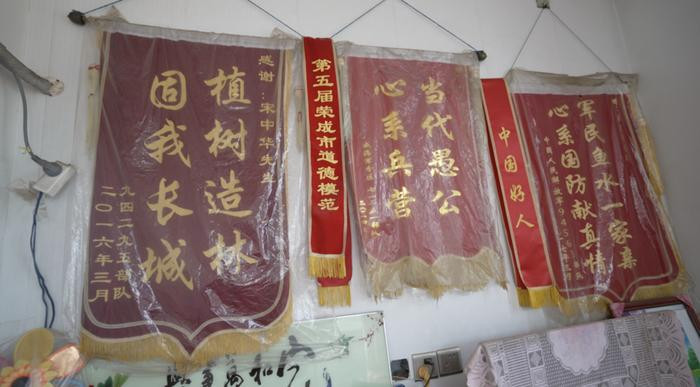 感谢：宋中华先生
植树造林
固我长城
九四二九五部队
二〇一六年三月
第五届荣成市道德模范
当代愚公
心系兵营
中国好人
军民鱼水一家亲
心系国防献真情